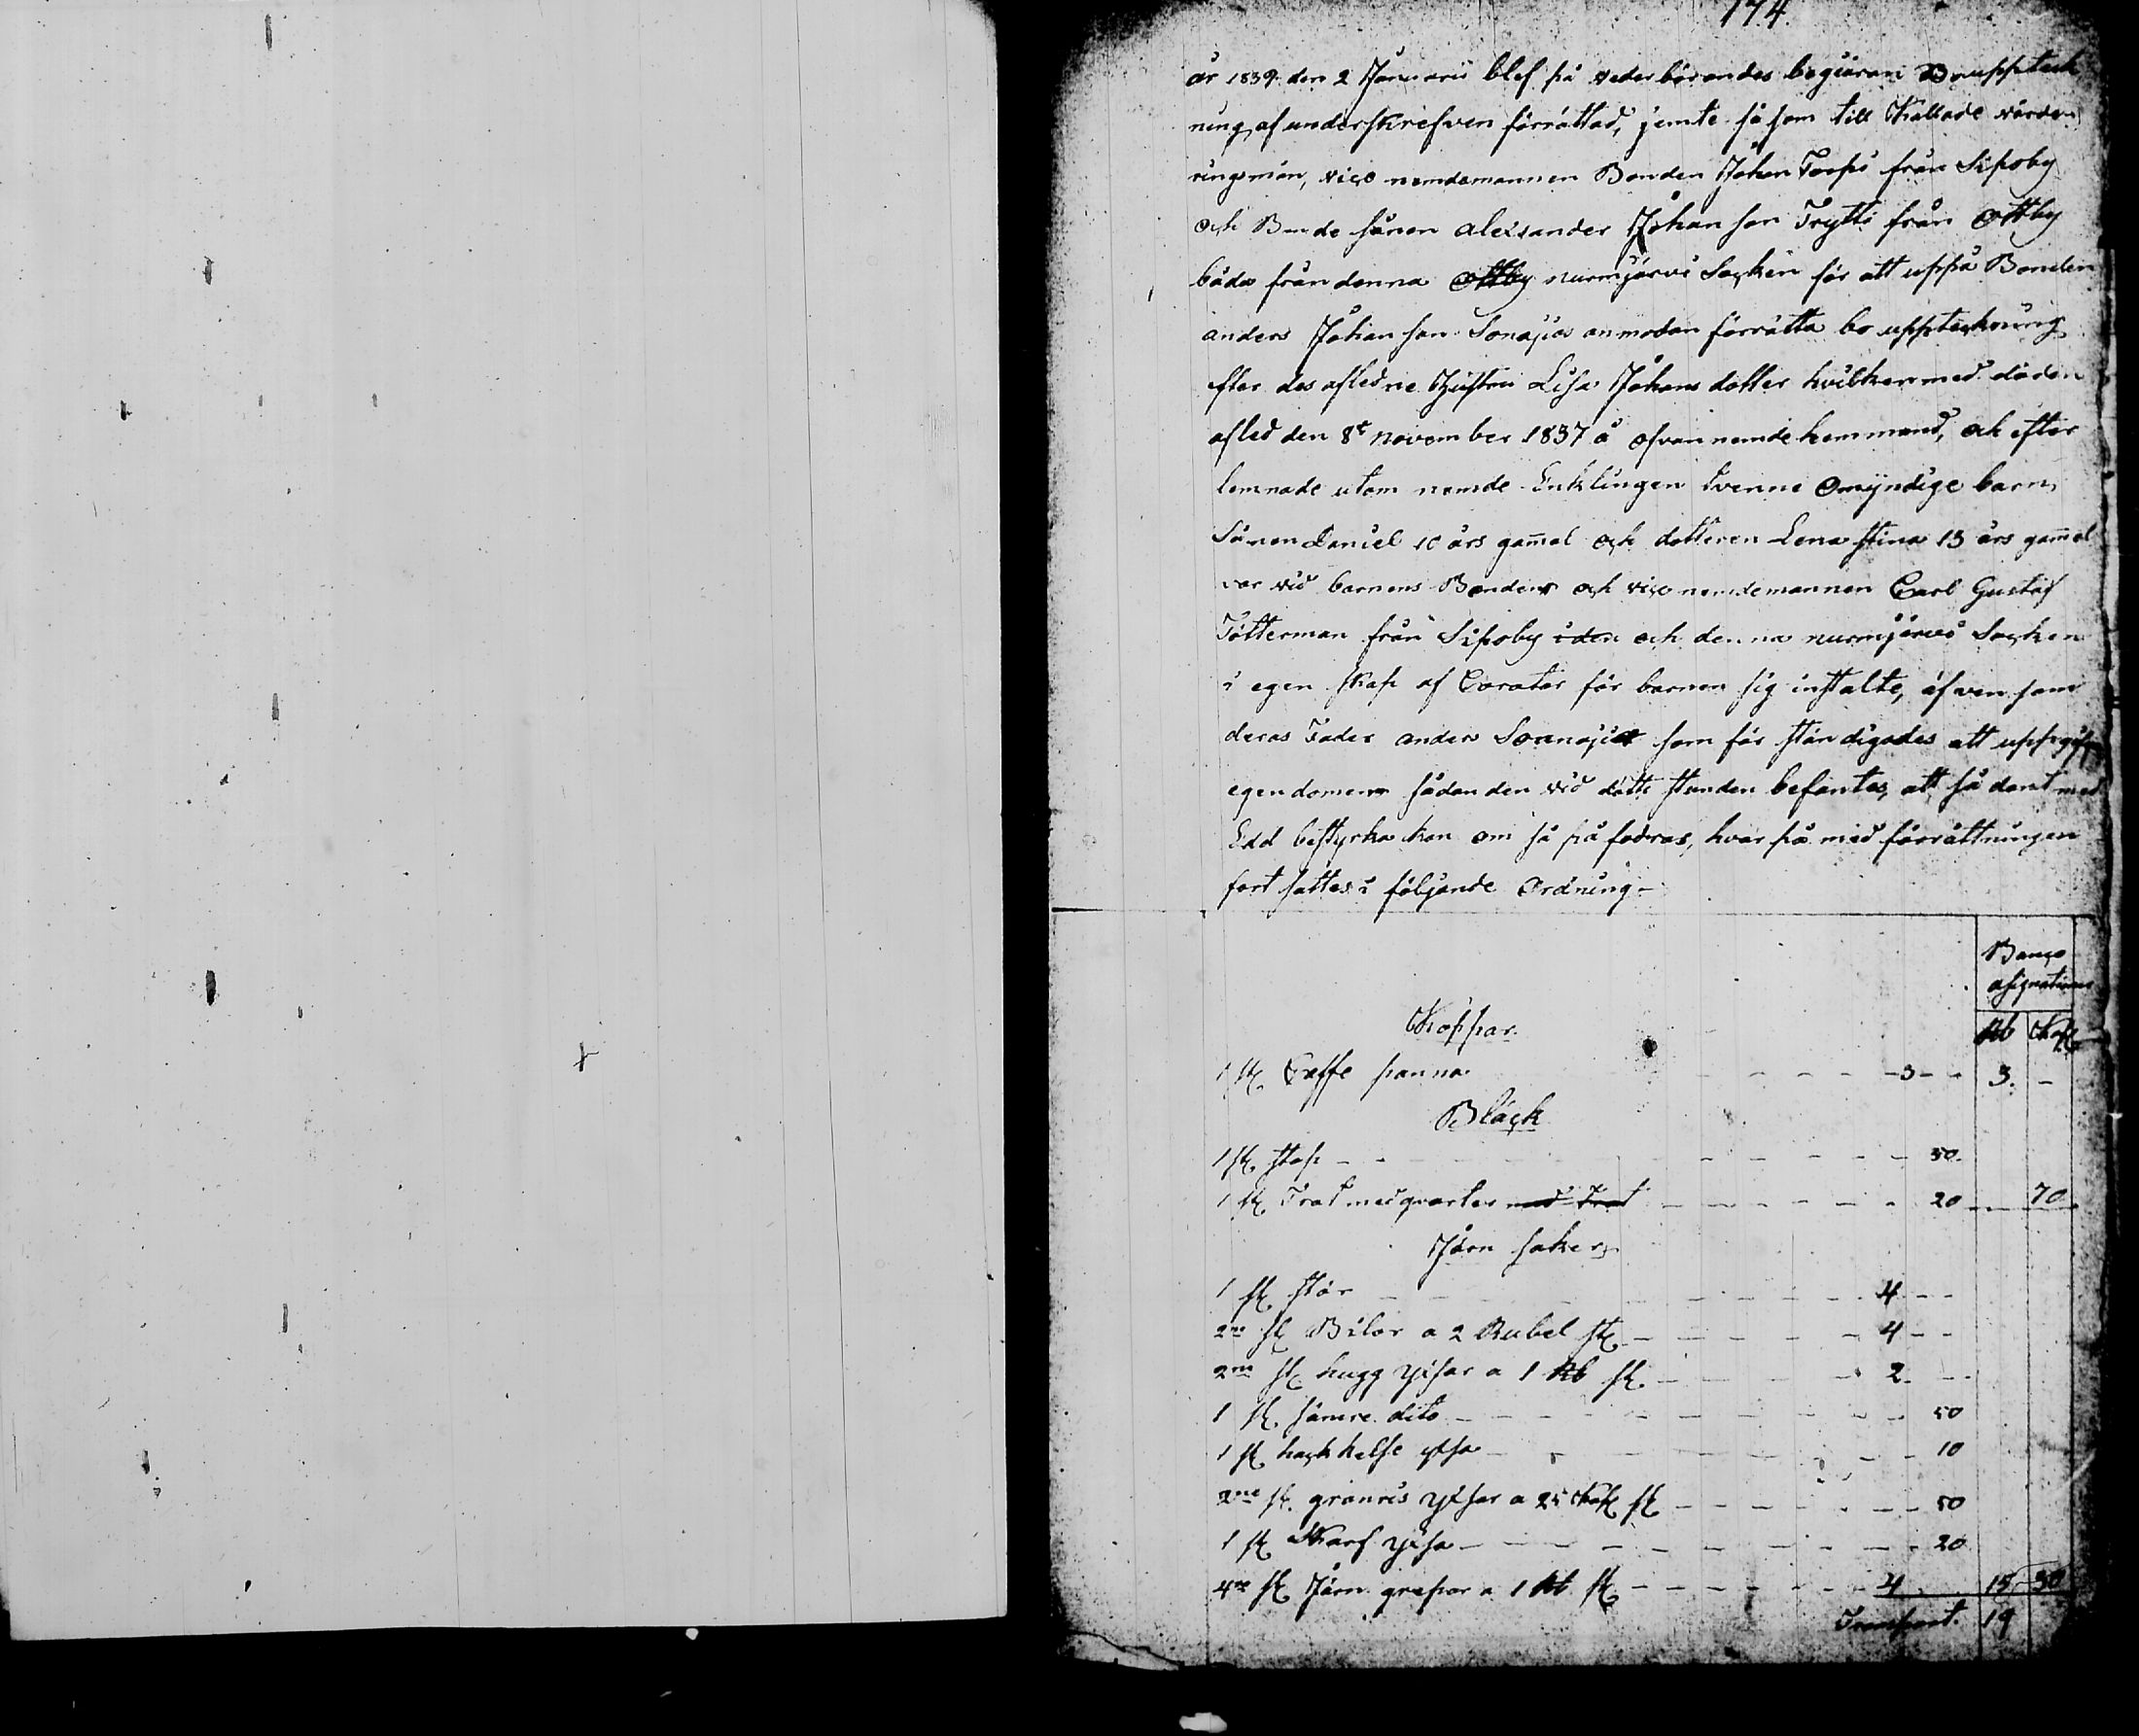 174.
år 1839 den 2 Januarii blef på vederbörandes begiäran Bouppteck
ning af underskrefven förrättad, jemte så som till Kallade värde
ringsmän, viço nemdemannen Bonden Johan Torpi från Sipoby
och Bonde sånen alexander Johan son Frytti från Ottby
båda från denna Ottby nurmjärvi Soçken för att uppå Bonden
anders Johan son Sonajia anmodan förrätta bo uppteçkning
efter des afledne Hustru Lisa Johans dotter hvilken med döden
afled den 8de november 1837 å ofvan nemde hemmand, och efter
lemnade utom nemde Enklingen tvenne Omÿndige barn,
Sånen Daniel 10 års gamal och dotteren Lena Stina 13 års gamal
var vid barnens Bonden och viço nemdemannen Carl Gustaf
Tötterman från Sipoby i den och denna nurmjärvi Soçken
i egen skap af Corator för barnen sig instalte, äfven som
deras Fader anders Sonnajia som för ständigades att uppgif
egendomen sådan den vid döds stunden befantes, att så dant med
Edd bestyrka kan om så på fodras, hvar på med förrättningen
fort sattes i följande Ordning –
Banço
asignationer
Rb Kopk
Koppar.
1 st. Caffe panna – – – – 3 – – 3. –
Bläçk
1 st. stop – – – – 50.
1 st. Trat med qvarter med trat – – – – 20 – – 70
Järn saker
1 st. stör – – – – 4 – –
2ne st. Bilor a 2 Rubel st. – – – – 4 – –
2ne st. hugg yxsor a 1 Rb st. – – – – 2. – –
1 st. sämre dito – – – – 50
1 st. haçkhelse yxsa – – – – 10
2ne st. granris yxsor a 25 Kopk st. – – – – 50
1 st. Skarf yxsa – – – – 20
4ra st. Järn grepar a 1 Rb st. – – – – 4 15 30
Transport. 19